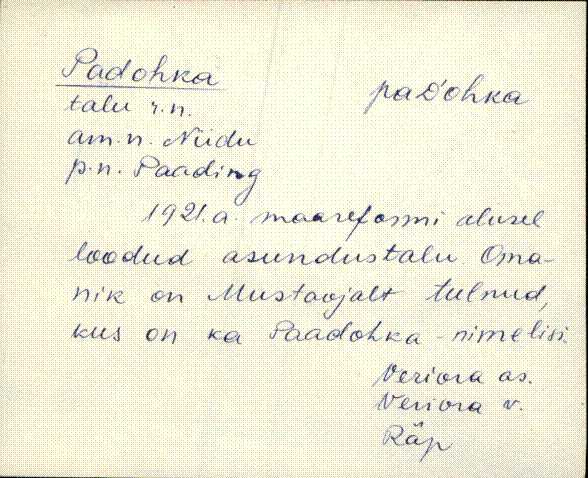 Padohka
paD'ohka
talu r.n.
am.n. Niidu
p.n. Paading
1921.a. maareformi alusel
loodud asundustalu. Oma-
nik on Mustaojalt tulnud,
kus on ka Paadohka-nimelisi.
Veriora as.
Veriora v.
Räp